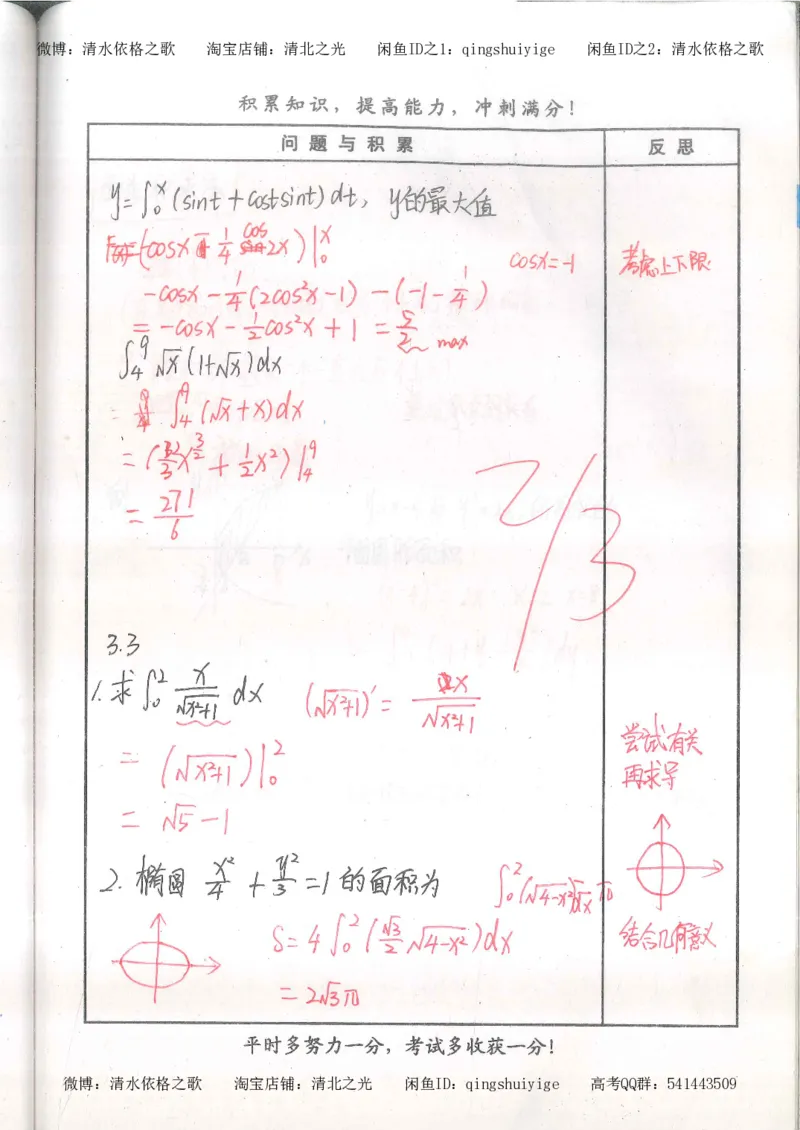 微博：清水依格之歌 淘宝店铺：清北之光 闲鱼ID之1：qingshuiyige 闲鱼ID之2：清水依格之歌
积累知识，提高能力，冲刺满分！
问题与积累 反思
y=∫₀ˣ(sint+costsint)dt，y的最大值
(-cosx-1/4cos2x)|₀ˣ
cosx=-1
考虑上下限
-cosx-1/4(2cos²x-1)-(-1-1/4)
=-cosx-1/2cos²x+1=5/2 max
∫₄⁹√x(1+√x)dx
=∫₄⁹(√x+x)dx
=(2/3x^(3/2)+1/2x²)|₄⁹
=271/6
3.3
1.求∫₀²x/√(x²+1)dx (√(x²+1))'=x/√(x²+1)
=(√(x²+1))|₀²
=√5-1
尝试有关
再求导
2.椭圆x²/4+y²/3=1的面积为
∫₀²(√(4-x²))dx π
S=4∫₀²(√3/2√(4-x²))dx
=2√3π
结合几何意义
平时多努力一分，考试多收获一分！
微博：清水依格之歌 淘宝店铺：清北之光 闲鱼ID：qingshuiyige 高考QQ群：541443509